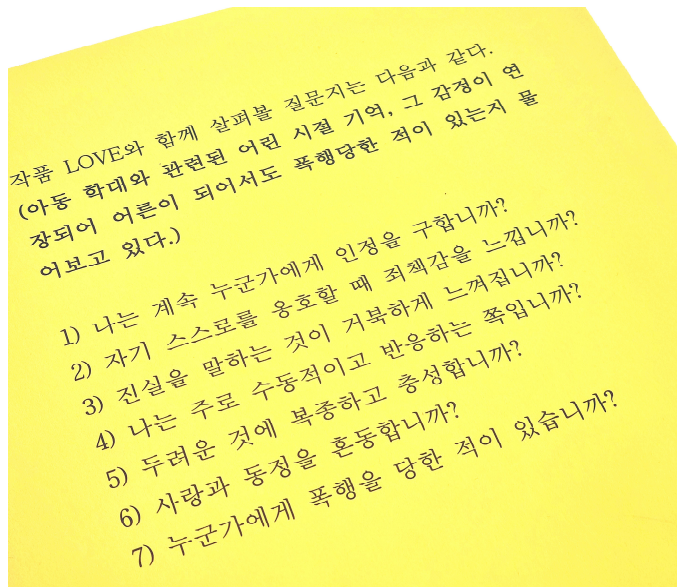 작품 LOVE와 함께 살펴볼 질문지는 다음과 같다.
(아동 학대와 관련된 어린 시절 기억, 그 감정이 연
장되어 어른이 되어서도 폭행당한 적이 있는지 물
어보고 있다.)
1) 나는 계속 누군가에게 인정을 구합니까?
2) 자기 스스로를 옹호할 때 죄책감을 느낍니까?
3) 진실을 말하는 것이 거북하게 느껴집니까?
4) 나는 주로 수동적이고 반응하는 쪽입니까?
5) 두려운 것에 복종하고 충성합니까?
6) 사랑과 동정을 혼동합니까?
7) 누군가에게 폭행을 당한 적이 있습니까?